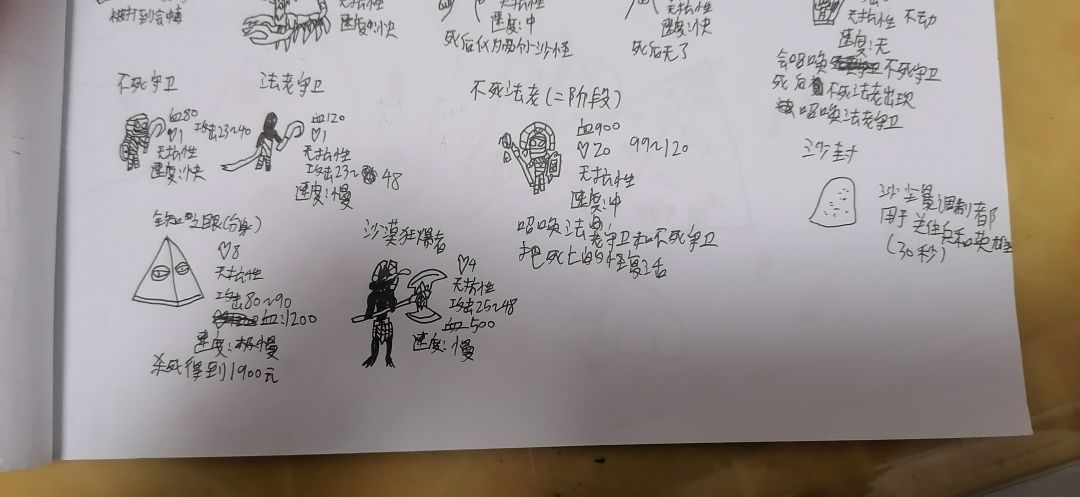 被打到会晕
无抗性
速度:快
速度:中
死后化为两个小沙怪
无抗性
速度:快
死后无了
无抗性 不动
速度:无
会召唤不死守卫
死后不死法老出现
召唤法老守卫
不死守卫
血80
♡1 攻击23~40
无抗性
速度:快
法老守卫
血120
♡1
无抗性
攻击23~48
速度:慢
不死法老(二阶段)
血900
♡20 99~120
无抗性
速度:中
召唤法老守卫和不死守卫
把死亡的怪复活
沙封
用于关住兵和英雄
(30秒)
全知之眼(分身)
♡8
无抗性
攻击80~90
血:1200
速度:极慢
杀死得到1900元
沙漠狂爆者
♡4
无抗性
攻击25~48
血500
速度:慢